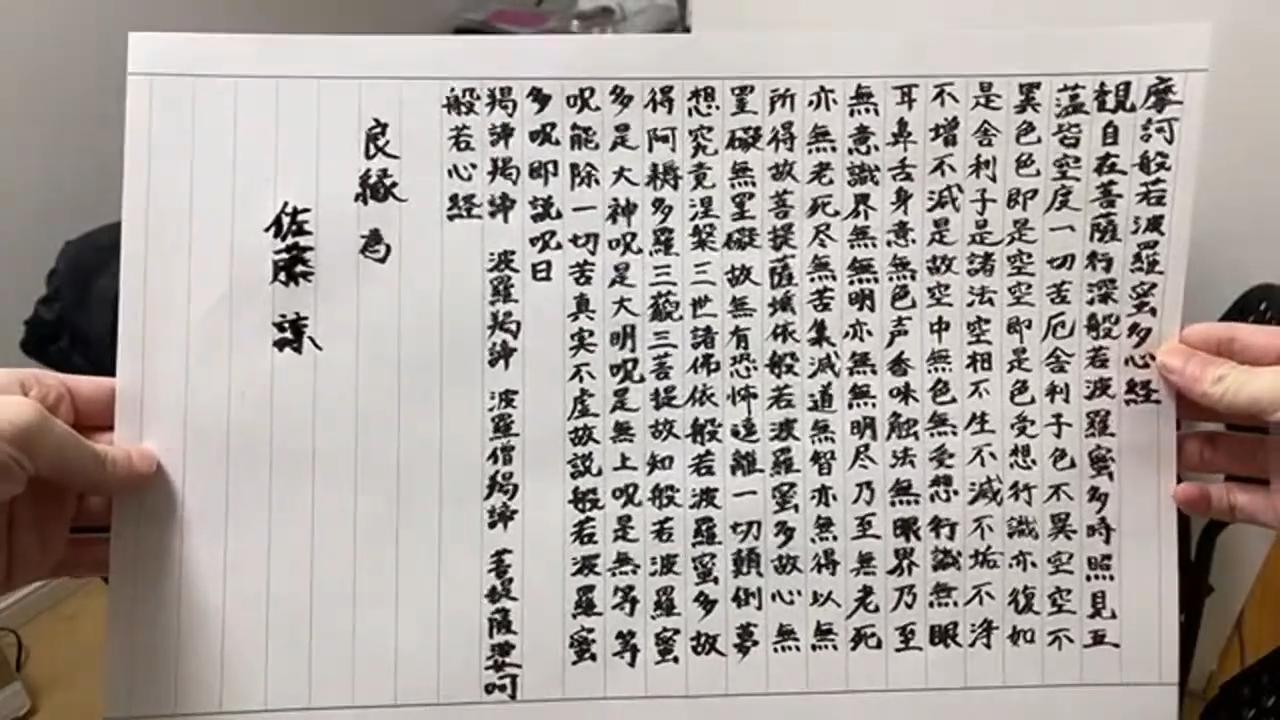 摩訶般若波羅蜜多心経
観自在菩薩行深般若波羅蜜多時照見五
蘊皆空度一切苦厄舎利子色不異空空不
異色色即是空空即是色受想行識亦復如
是舎利子是諸法空相不生不滅不垢不浄
不増不減是故空中無色無受想行識無眼
耳鼻舌身意無色声香味触法無眼界乃至
無意識界無無明亦無無明尽乃至無老死
亦無老死尽無苦集滅道無智亦無得以無
所得故菩提薩埵依般若波羅蜜多故心無
罣礙無罣礙故無有恐怖遠離一切顛倒夢
想究竟涅槃三世諸佛依般若波羅蜜多故
得阿耨多羅三藐三菩提故知般若波羅蜜
多是大神呪是大明呪是無上呪是無等等
呪能除一切苦真実不虚故説般若波羅蜜
多呪即説呪曰
羯諦羯諦 波羅羯諦 波羅僧羯諦 菩提薩婆呵
般若心経
良縁為
佐藤 諒